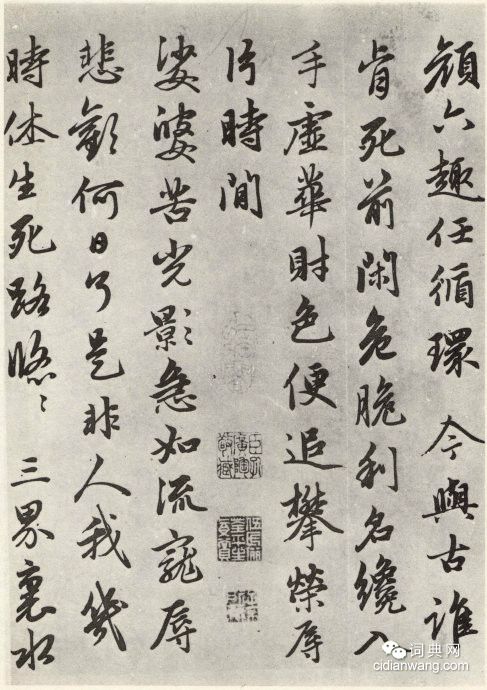 顔六趣任循環 今與古誰
肯死前閑危脆利名纔入
手虛華財色便追攀榮辱
片時間
娑婆苦光影急如流寵辱
悲歡何日了是非人我幾
時休生死路悠〻 三界裏水
词典网
cidianwang.com